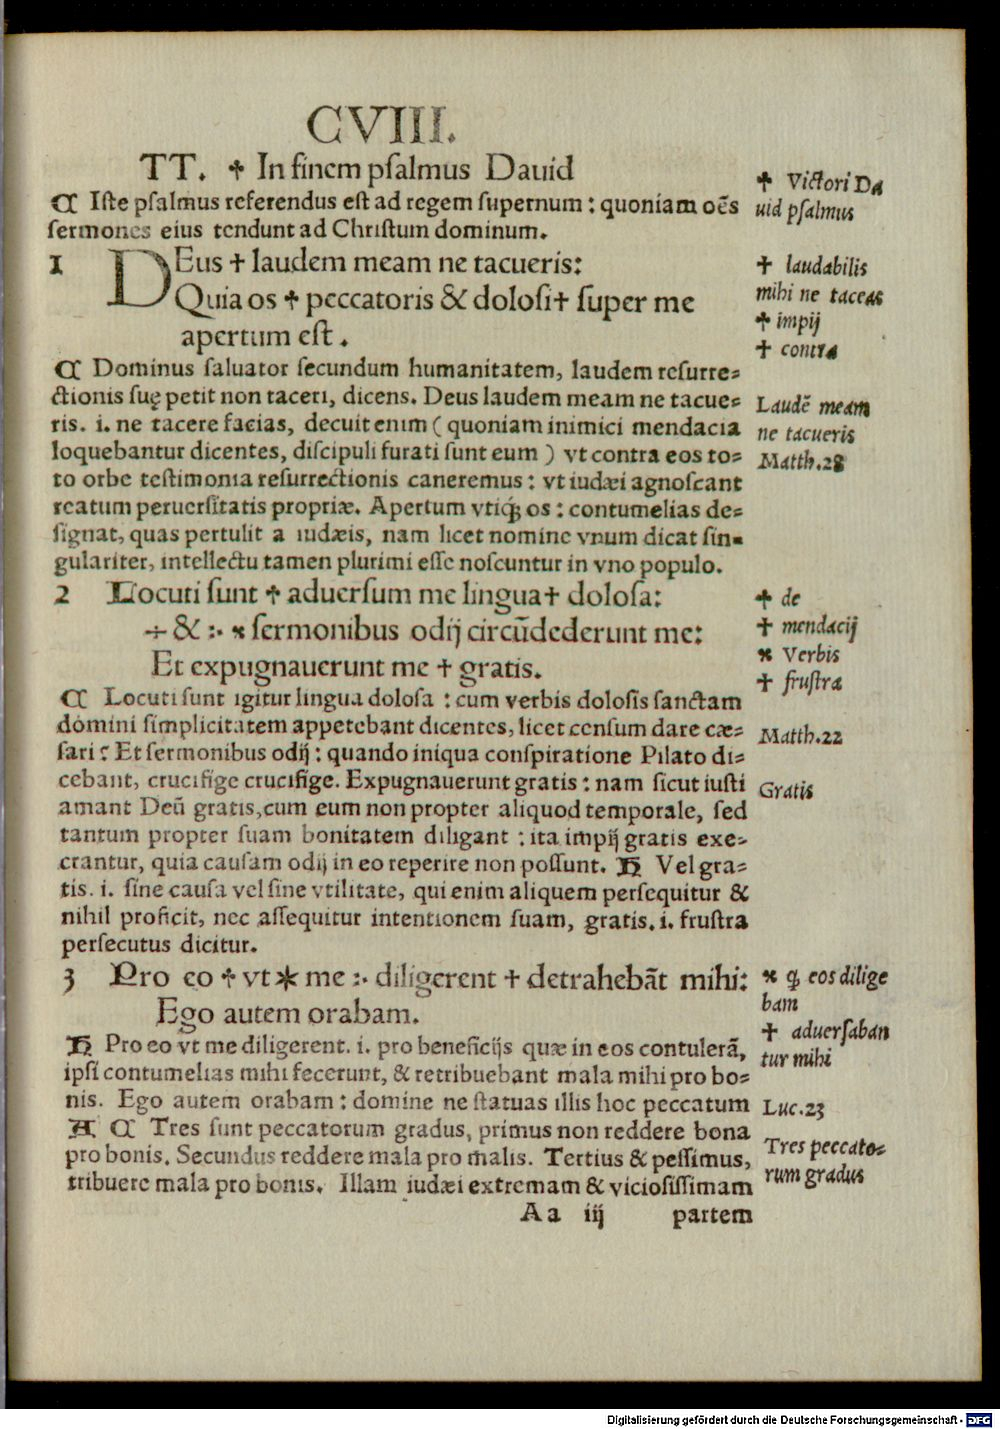 CVIII.
TT. ✝ In finem pſalmus Dauid
✝ Victori Da
uid pſalmus
ℂ Iſte pſalmus referendus eſt ad regem ſupernum : quoniam oẽs
ſermones eius tendunt ad Chriſtum dominum.
1 DEus † laudem meam ne tacueris:
Quia os ✝ peccatoris & doloſi† ſuper me
apertum eſt.
† laudabilis
mihi ne taceas
✝ impij
† contra
ℂ Dominus ſaluator ſecundum humanitatem, laudem reſurre⸗
ctionis ſuę petit non taceri, dicens. Deus laudem meam ne tacue⸗
ris. i. ne tacere facias, decuit enim ( quoniam inimici mendacia
loquebantur dicentes, diſcipuli furati ſunt eum ) vt contra eos to⸗
to orbe teſtimonia reſurrectionis caneremus : vt iudæi agnoſcant
reatum peruerſitatis propriæ. Apertum vtiqꝫ os : contumelias de⸗
ſignat, quas pertulit a iudæis, nam licet nomine vnum dicat ſin⸗
gulariter, intellectu tamen plurimi eſſe noſcuntur in vno populo.
Laudẽ meam
ne tacueris
Matth.28
2 Locuti ſunt ✝ aduerſum me lingua† doloſa:
÷ & :· ⁕ ſermonibus odij circũdederunt me:
Et expugnauerunt me † gratis.
✝ de
† mendacij
⁕ Verbis
† fruſtra
ℂ Locuti ſunt igitur lingua doloſa : cum verbis doloſis ſanctam
domini ſimplicitatem appetebant dicentes, licet cenſum dare cæ⸗
ſari? Et ſermonibus odij : quando iniqua conſpiratione Pilato di⸗
cebant, crucifige crucifige. Expugnauerunt gratis : nam ſicut iuſti
amant Deũ gratis, cum eum non propter aliquod temporale, ſed
tantum propter ſuam bonitatem diligant : ita impij gratis exe⸗
crantur, quia cauſam odij in eo reperire non poſſunt. H Vel gra⸗
tis. i. ſine cauſa vel ſine vtilitate, qui enim aliquem perſequitur &
nihil proficit, nec aſſequitur intentionem ſuam, gratis. i. fruſtra
perſecutus dicitur.
Matth.22
Gratis
3 Pro eo ✝ vt ✱ me :· diligerent † detrahebãt mihi:
Ego autem orabam.
⁕ ꝙ eos dilige
bam
† aduerſaban
tur mihi
H Pro eo vt me diligerent. i. pro beneficijs quæ in eos contulerã,
ipſi contumelias mihi fecerunt, & retribuebant mala mihi pro bo⸗
nis. Ego autem orabam : domine ne ſtatuas illis hoc peccatum
A ℂ Tres ſunt peccatorum gradus, primus non reddere bona
pro bonis. Secundus reddere mala pro malis. Tertius & peſſimus,
tribuere mala pro bonis. Illam iudæi extremam & vicioſiſſimam
Luc.23
Tres peccato⸗
rum gradus
Aa iij partem
Digitalisierung gefördert durch die Deutsche Forschungsgemeinschaft - DFG